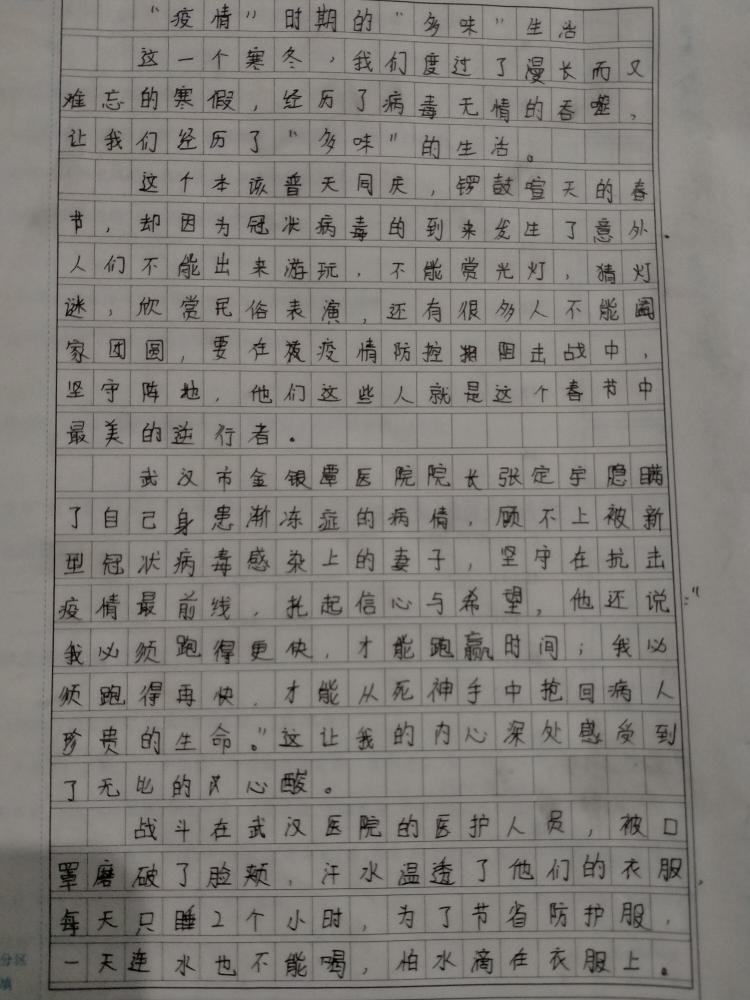 “疫情”时期的“多味”生活
这一个寒冬,我们度过了漫长而又
难忘的寒假,经历了病毒无情的吞噬,
让我们经历了“多味”的生活。
这个本该普天同庆,锣鼓喧天的春
节,却因为冠状病毒的到来发生了意外.
人们不能出来游玩,不能赏光灯,猜灯
谜,欣赏民俗表演,还有很多人不能阖
家团圆,要在疫情防控阻击战中,
坚守阵地,他们这些人就是这个春节中
最美的逆行者。
武汉市金银潭医院院长张定宇隐瞒
了自己身患渐冻症的病情,顾不上被新
型冠状病毒感染上的妻子,坚守在抗击
疫情最前线,托起信心与希望,他还说:“
我必须跑得更快,才能跑赢时间;我必
须跑得再快,才能从死神手中抢回病人
珍贵的生命。”这让我的内心深处感受到
了无比的心酸。
战斗在武汉医院的医护人员,被口
罩磨破了脸颊,汗水温透了他们的衣服,
每天只睡2个小时,为了节省防护服,
一天连水也不能喝,怕水滴在衣服上。
分区
填